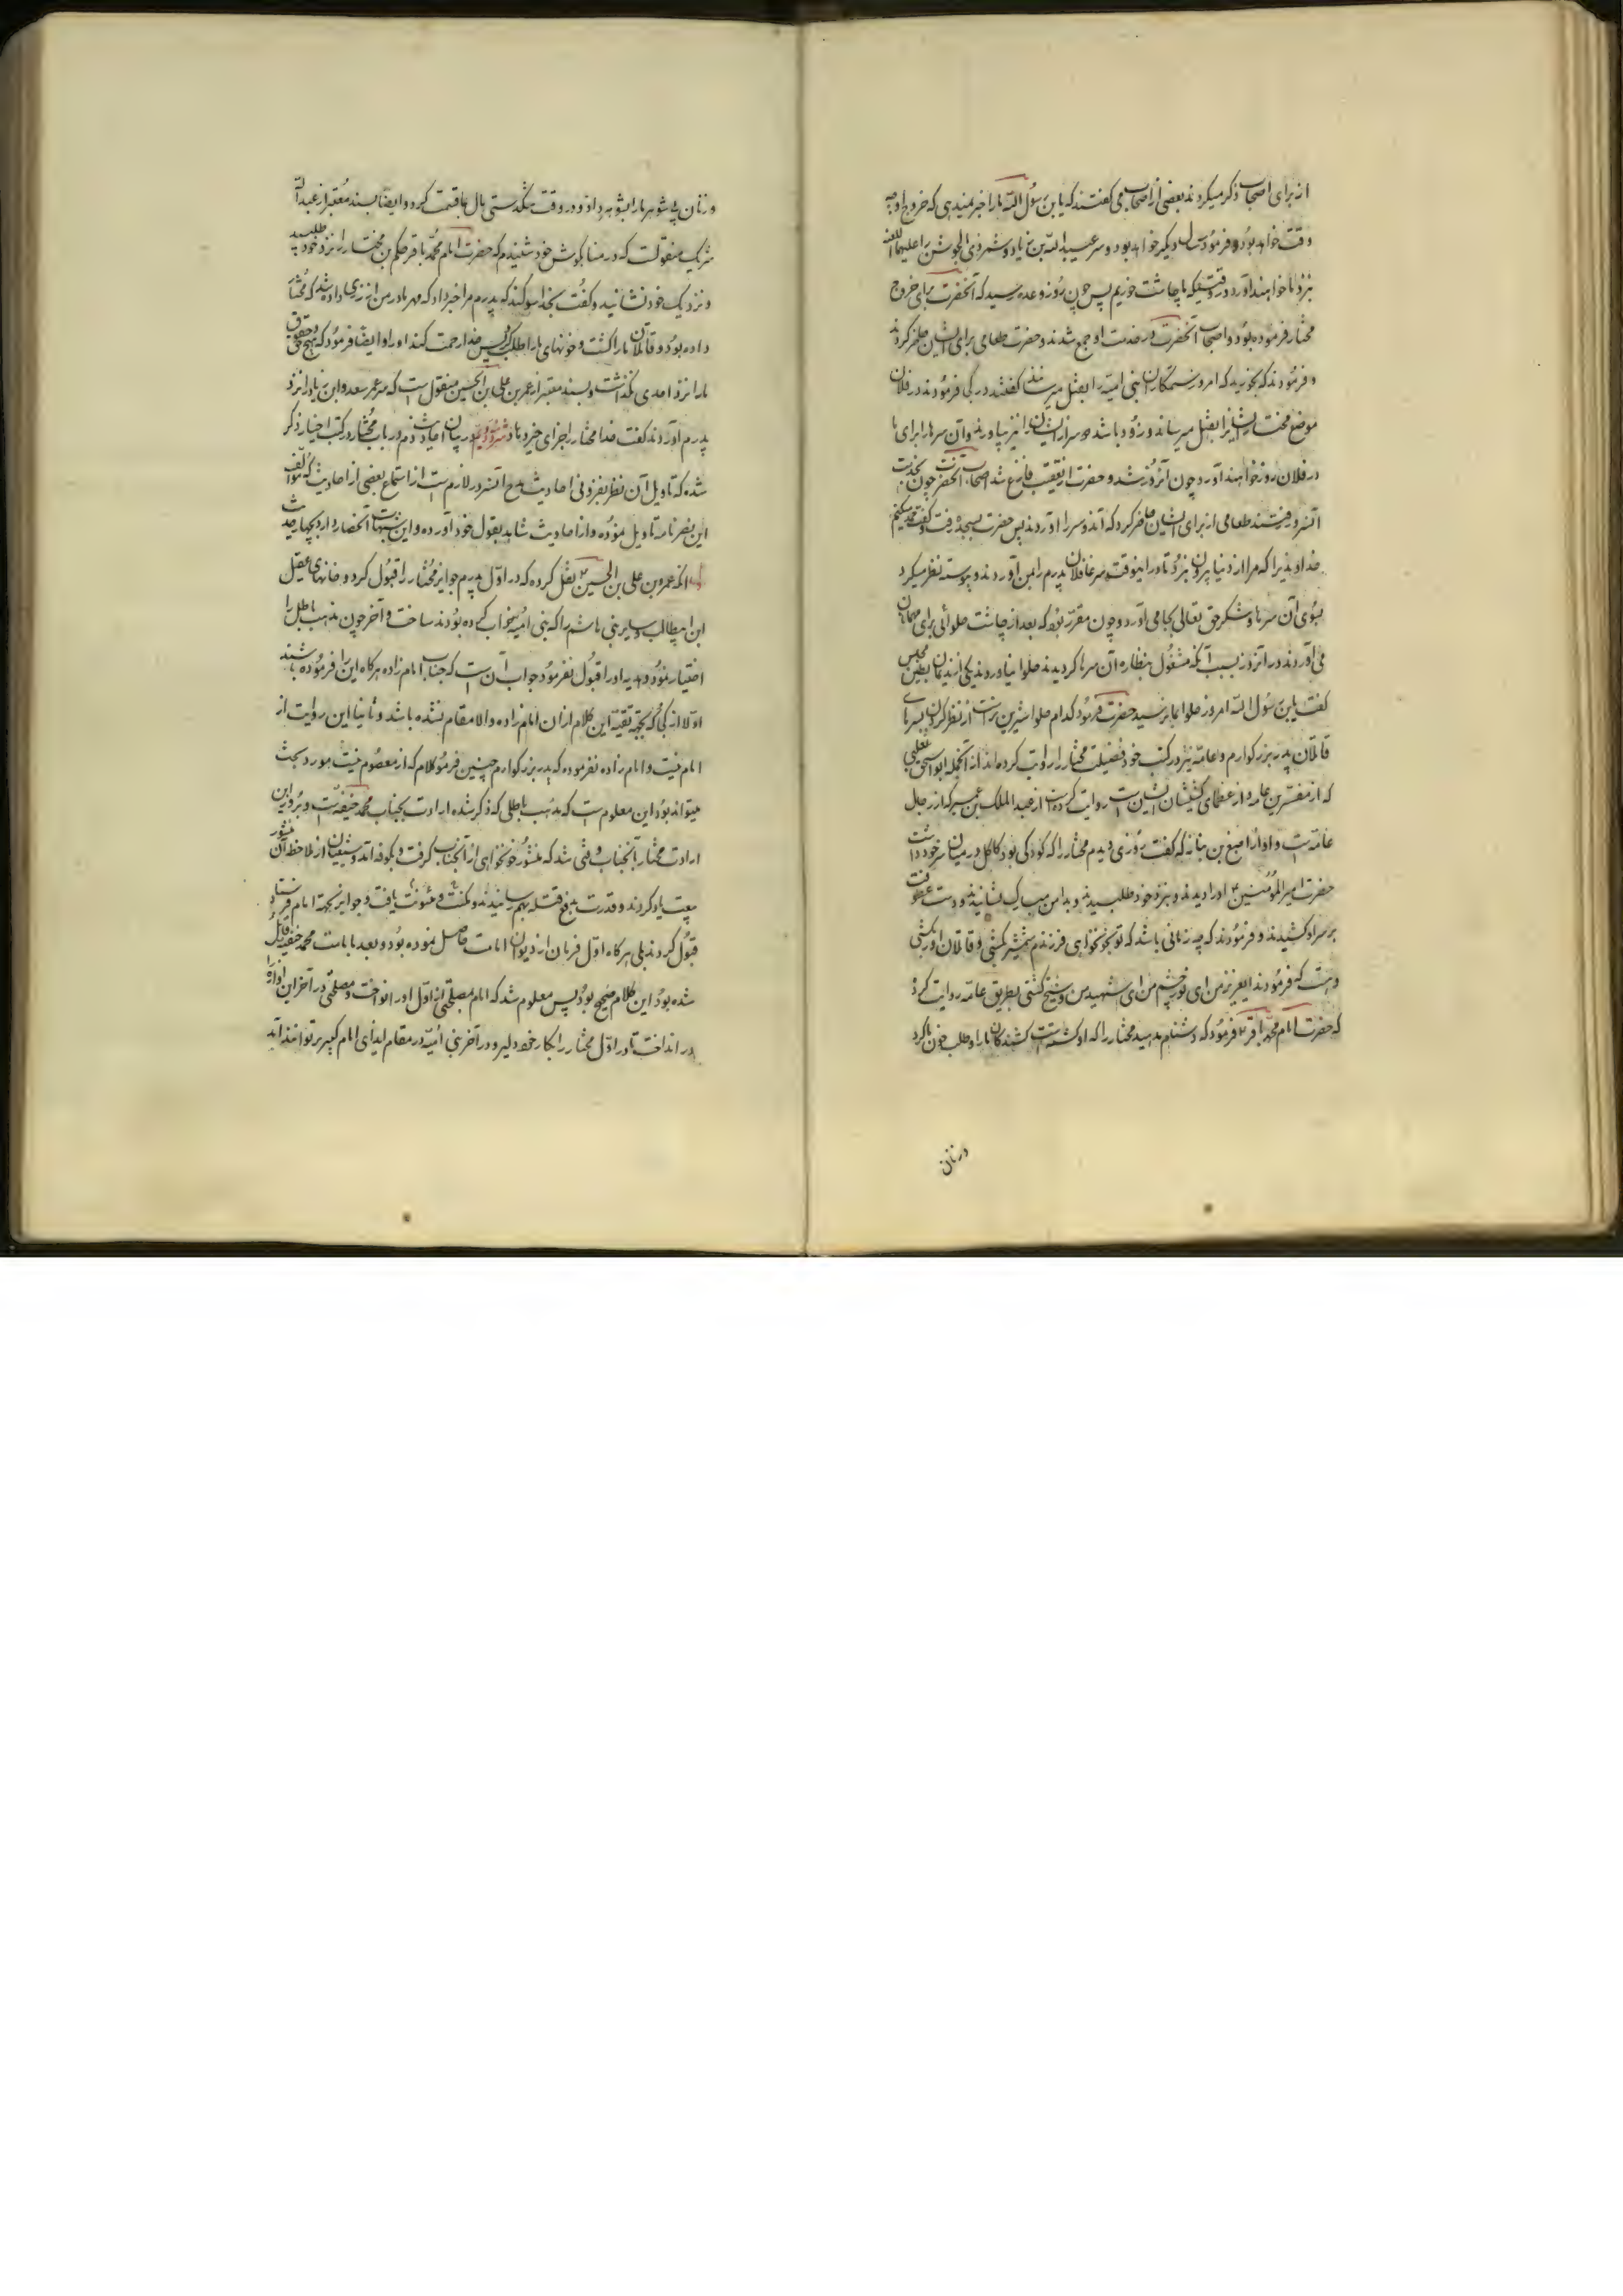 از برای اصحاب ذکر میکردند بعضی از اصحاب می گفتند که یابن رسول الله ما را خبر نمیدهی که خروج او چه
وقت خواهد بود و فرمود سال دیگر خواهد بود و سر عبیدالله بن زیاد و شمر ذی الجوشن را علیهما اللعنه
نزد ما خواهند آورد در وقتیکه ما چاشت خوریم پس چون روز وعده رسید که آنحضرت برای خروج
مختار فرموده بود و اصحاب آنحضرت در خدمت او جمع شدند و حضرت طعامی برای ایشان حاضر کردند
و فرمودند که بخورید که امروز ستمکاران بنی امیه را بقتل میرسانند گفتند در کجا فرمودند در فلان
موضع مختار ایشانرا بقتل میرساند و زود باشد که سر از ایشان را نیز بیاورند و آن سرها را برای ما
در فلان روز خواهند آورد چون آنروز شد و حضرت از تعقیب فارغ شد اصحاب آنحضرت چون بخدمت
آنسرور رفتند طعامی از برای ایشان حاضر کرد که آندو سر را آوردند پس حضرت بسجده رفت و گفت حمد میکنم
خداوندیرا که مرا از دنیا بیرون نبرد تا در اینوقت سر قاتلان پدرم را بمن آوردند و پیوسته نظر میکرد
بسوی آن سرها و شکر حق تعالی بجا می آورد و چون مقرر بود که بعد از چاشت حلوائی برای مهمانان
می آوردند در آنروز بسبب آنکه مشغول نظاره آن سرها گردیدند حلوا نیاوردند یکی از ندیمان مجلس
گفت یابن رسول الله امروز حلوا بما نرسید حضرت فرمود کدام حلوا شیرین تر است از نظر کردن بسرهای
قاتلان پدر بزرگوارم و عامه نیز در کتب خود فضیلت مختار را روایت کرده اند از آنجمله ابو اسحق ثعلبی
که از مفسرین عامه و از عظمای ایشان است روایت کرده است از عبدالملک بن عمیر که از رجال
عامه است و او از اصبغ بن نباته که گفت روزی دیدم مختار را که کودکی بود کاکل در میان سر خود داشت
حضرت امیرالمؤمنین ع او را دیدند و بنزد خود طلبیدند و بدامن مبارک نشانیدند و دست عطوفت
بر سر او کشیدند و فرمودند که چه زمانی باشد که تو بخونخواهی فرزندم شمشیر کشی و قاتلان او را بکشی
که فرمودند ای عزیز من ای نور چشم من ای شهید من و شیخ کشی بطریق عامه روایت کرد
که حضرت امام محمد باقر ع فرمود که دشنام مدهید مختار را که او کشته است کشندگان ما را و طلب خون ما کرد
و زنان
و زنان بی شوهر ما را بشوهر داد و در وقت تنگدستی مال بما قسمت کرد و ایضا بسند معتبر از عبدالله
شریک منقولست که در منا بگوش خود شنیدم که حضرت امام محمد باقر حکم بن مختار را بنزد خود طلبید
و نزدیک خود نشانید و گفت بخدا سوگند که پدرم مرا خبر داد که مهر مادر من از زری داده شد که مختار
داده بود و قاتلان ما را کشت و خونهای ما را طلب کرد پس خدا رحمت کند او را و ایضا فرمود که هیچ حق و حقوق
ما را نزد احدی نگذاشت و بسند معتبر از عمر بن علی بن الحسین منقول است که سر عمر سعد و ابن زیاد را نزد
پدرم آوردند گفت خدا مختار را جزای خیر دهاد در بیان احادیث ذم در باب مختار در کتب اخبار ذکر
شده که تاویل آن نظر بفزونی احادیث مدح آنسرور لازم است از استماع بعضی از احادیث که مؤلف
این نصرنامه تاویل نموده و از احادیث شاهد بقول خود آورده و این شبهات انحصار دارد بچهار حدیث
آنکه عمر بن علی بن الحسین ع نقل کرده که در اول پدرم جوایز مختار را قبول کرد و خانهای عقیل
ابن ابیطالب و سایر بنی هاشم را که بنی امیه خراب کرده بودند ساخت و آخر چون مذهب باطل را
اختیار نمود هدیه او را قبول نفرمود جواب آن است که جناب امام زاده هرگاه این را فرموده باشند
اولا از کجا که بجهة تقیه این کلام از ان امام زاده والا مقام نشده باشد و ثانیا این روایت از
امام نیست و امام زاده نفرموده که پدر بزرگوارم چنین فرمود کلام که از معصوم نیست مورد بحث
میتواند بود این معلوم است که مذهب باطلی که ذکر شده ارادت بجناب محمد حنفیه است و بروز این
ارادت مختار بآنجناب وقتی شد که منشور خونخواهی از آنجناب گرفت و بکوفه آمد و شیعیان از ملاحظه آن منشور
بیعت باو کردند و قدرت بدفع قتله بهم رسانیدند و مکنت و مئونت یافت و جوایز بجهة امام فرستاد
قبول کردند بلی هرگاه اول فرمان از دیوان امامت حاصل نموده بود و بعد بامامت محمد حنفیه قائل
شده بود این کلام صحیح بود پس معلوم شد که امام بمصلحتی از اول او را نواخت و مصلحتی در آخر این آوازه را
در انداخت تا در اول مختار را بکار خود دلیر و در آخر بنی امیه در مقام ایذای امام کبیر بر نتوانند آمد